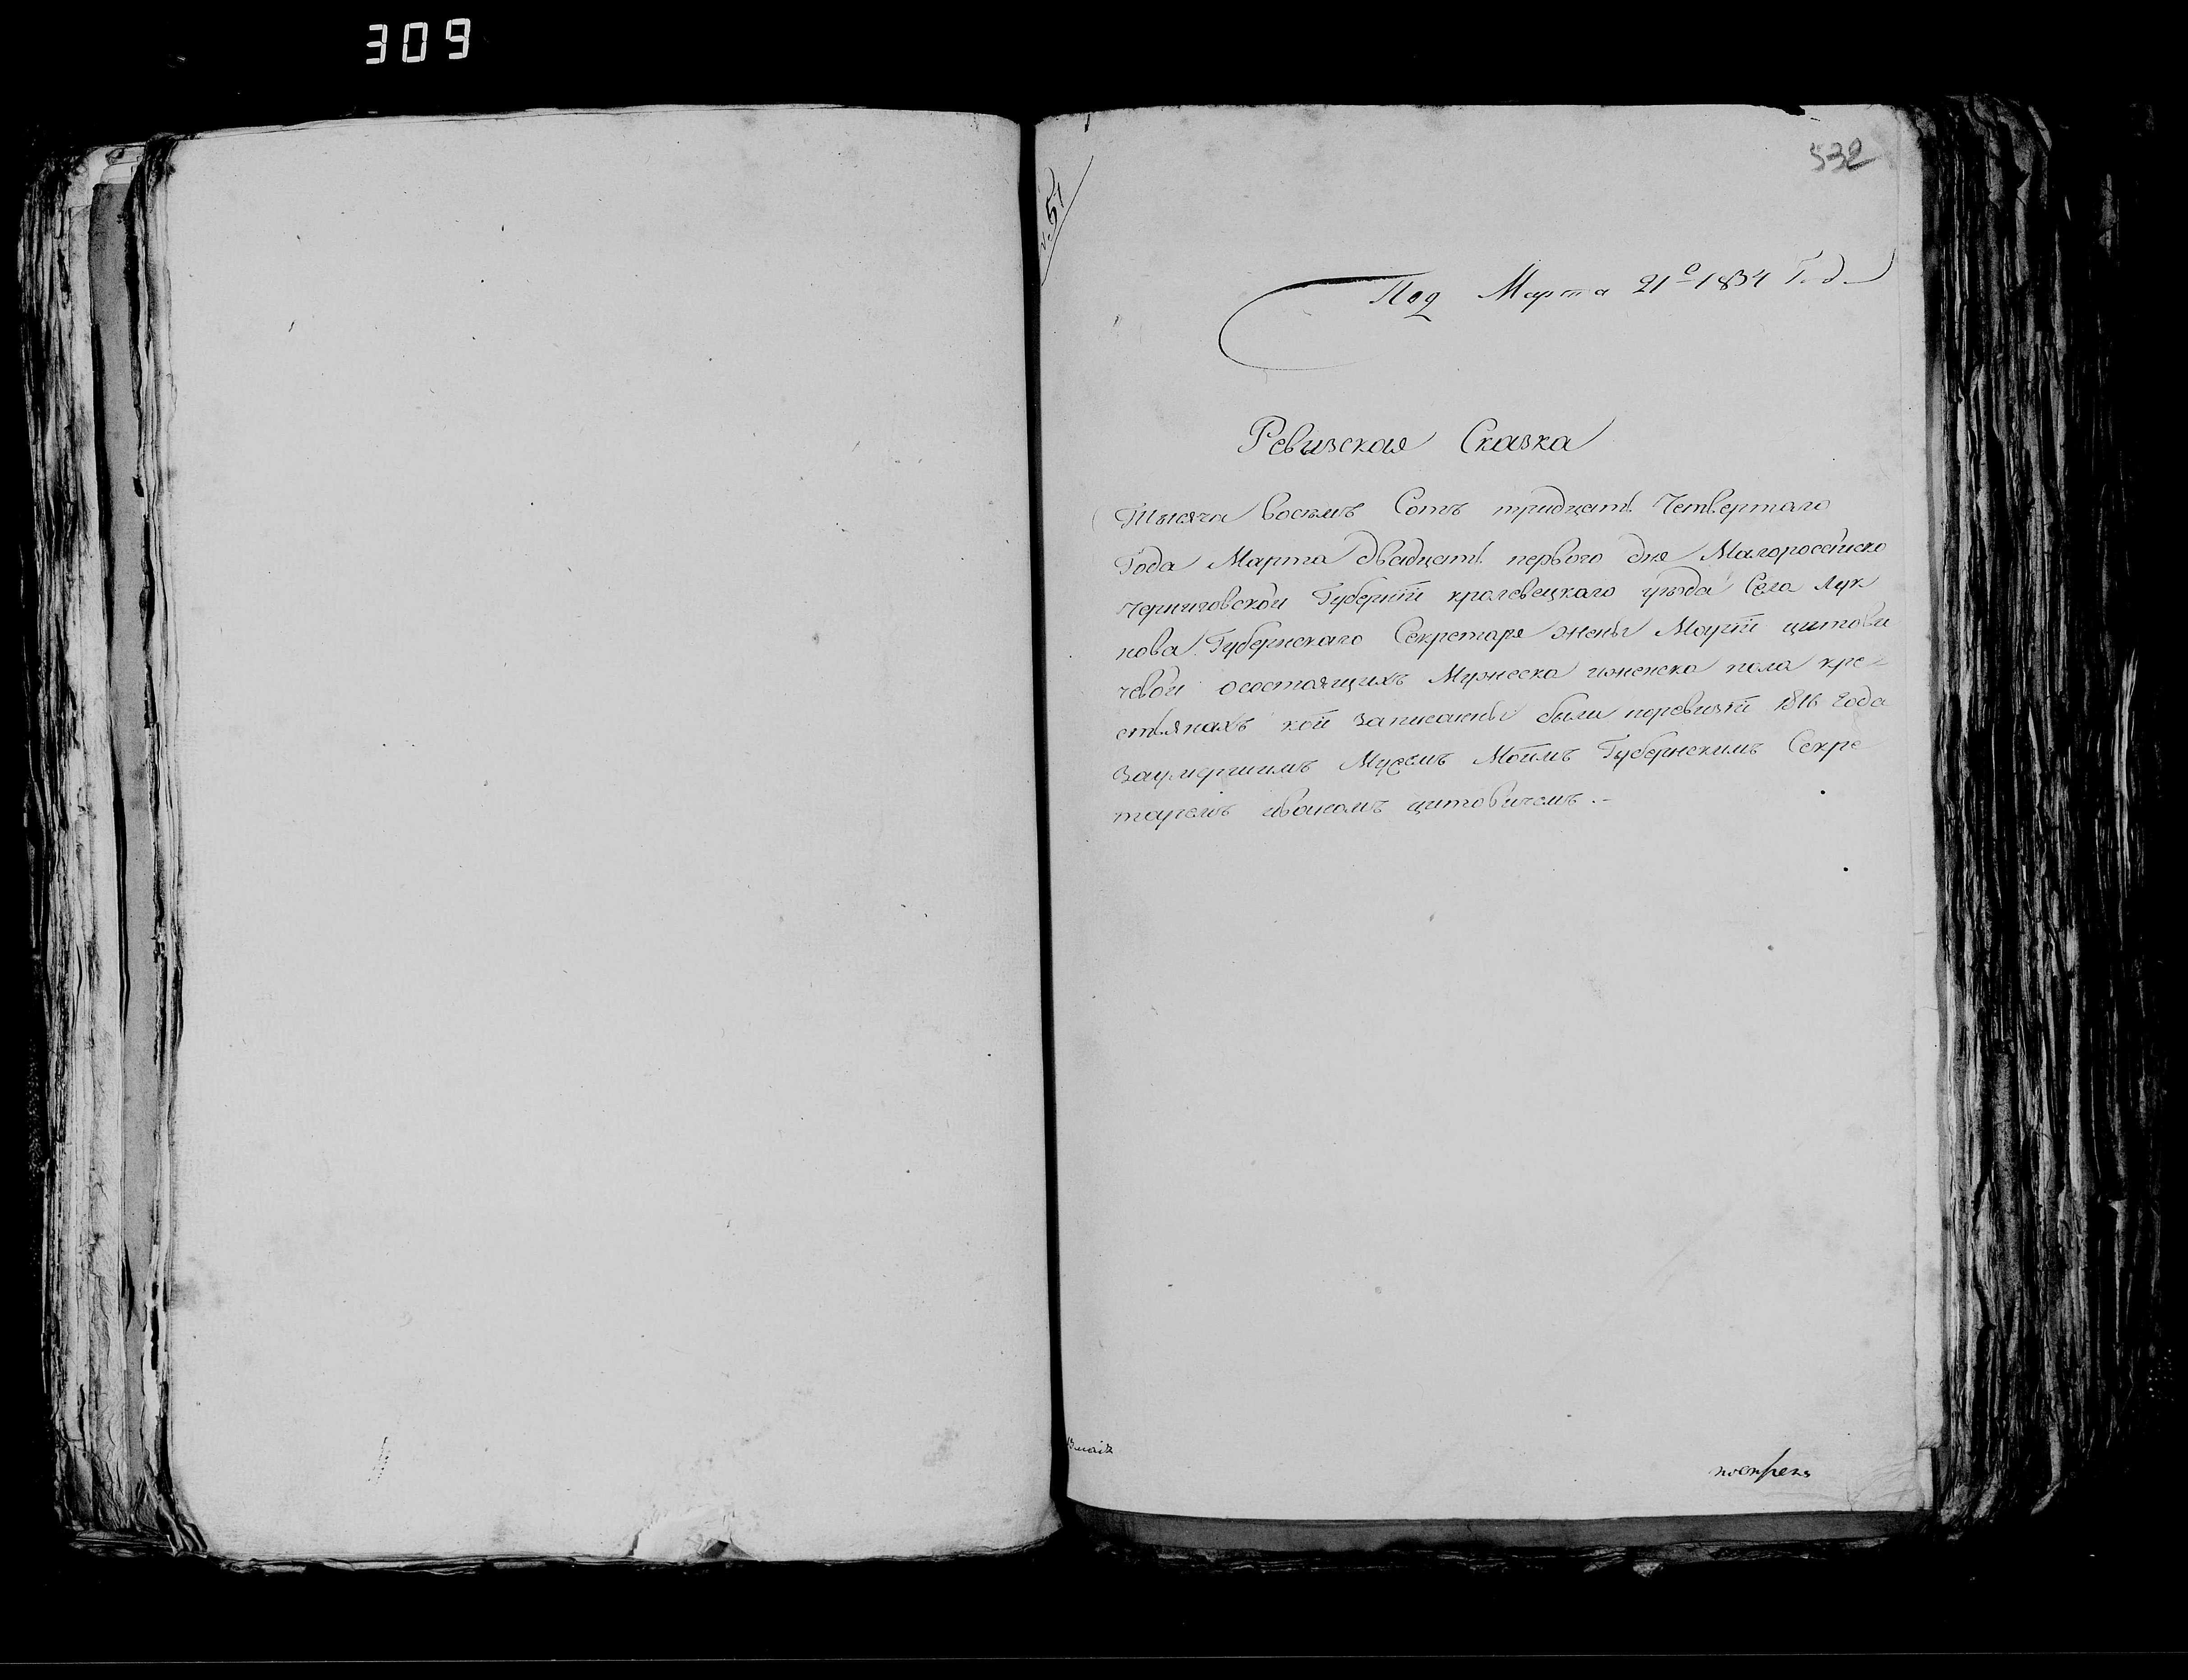 309
532
51
Под Марта 21го 1834 Года
Ревизская Сказка
Тысяча Восемъ Сотъ тридцать Четвертаго
Года Марта двадцать перваго дня Малоросóийско
Черниговской Губернїи кролевецкаго уѣзда Села Лук
нова Губернскаго Секретаря жены Марѓи цитови
чевой осостоящихъ Мужеска иженска пола кре=
стьянахъ кои записаны были поревизїи 1816 года
Заумершимъ Мужемъ Моимъ Губернскимъ Секре
таремъ иваномъ цитовичемъ.-